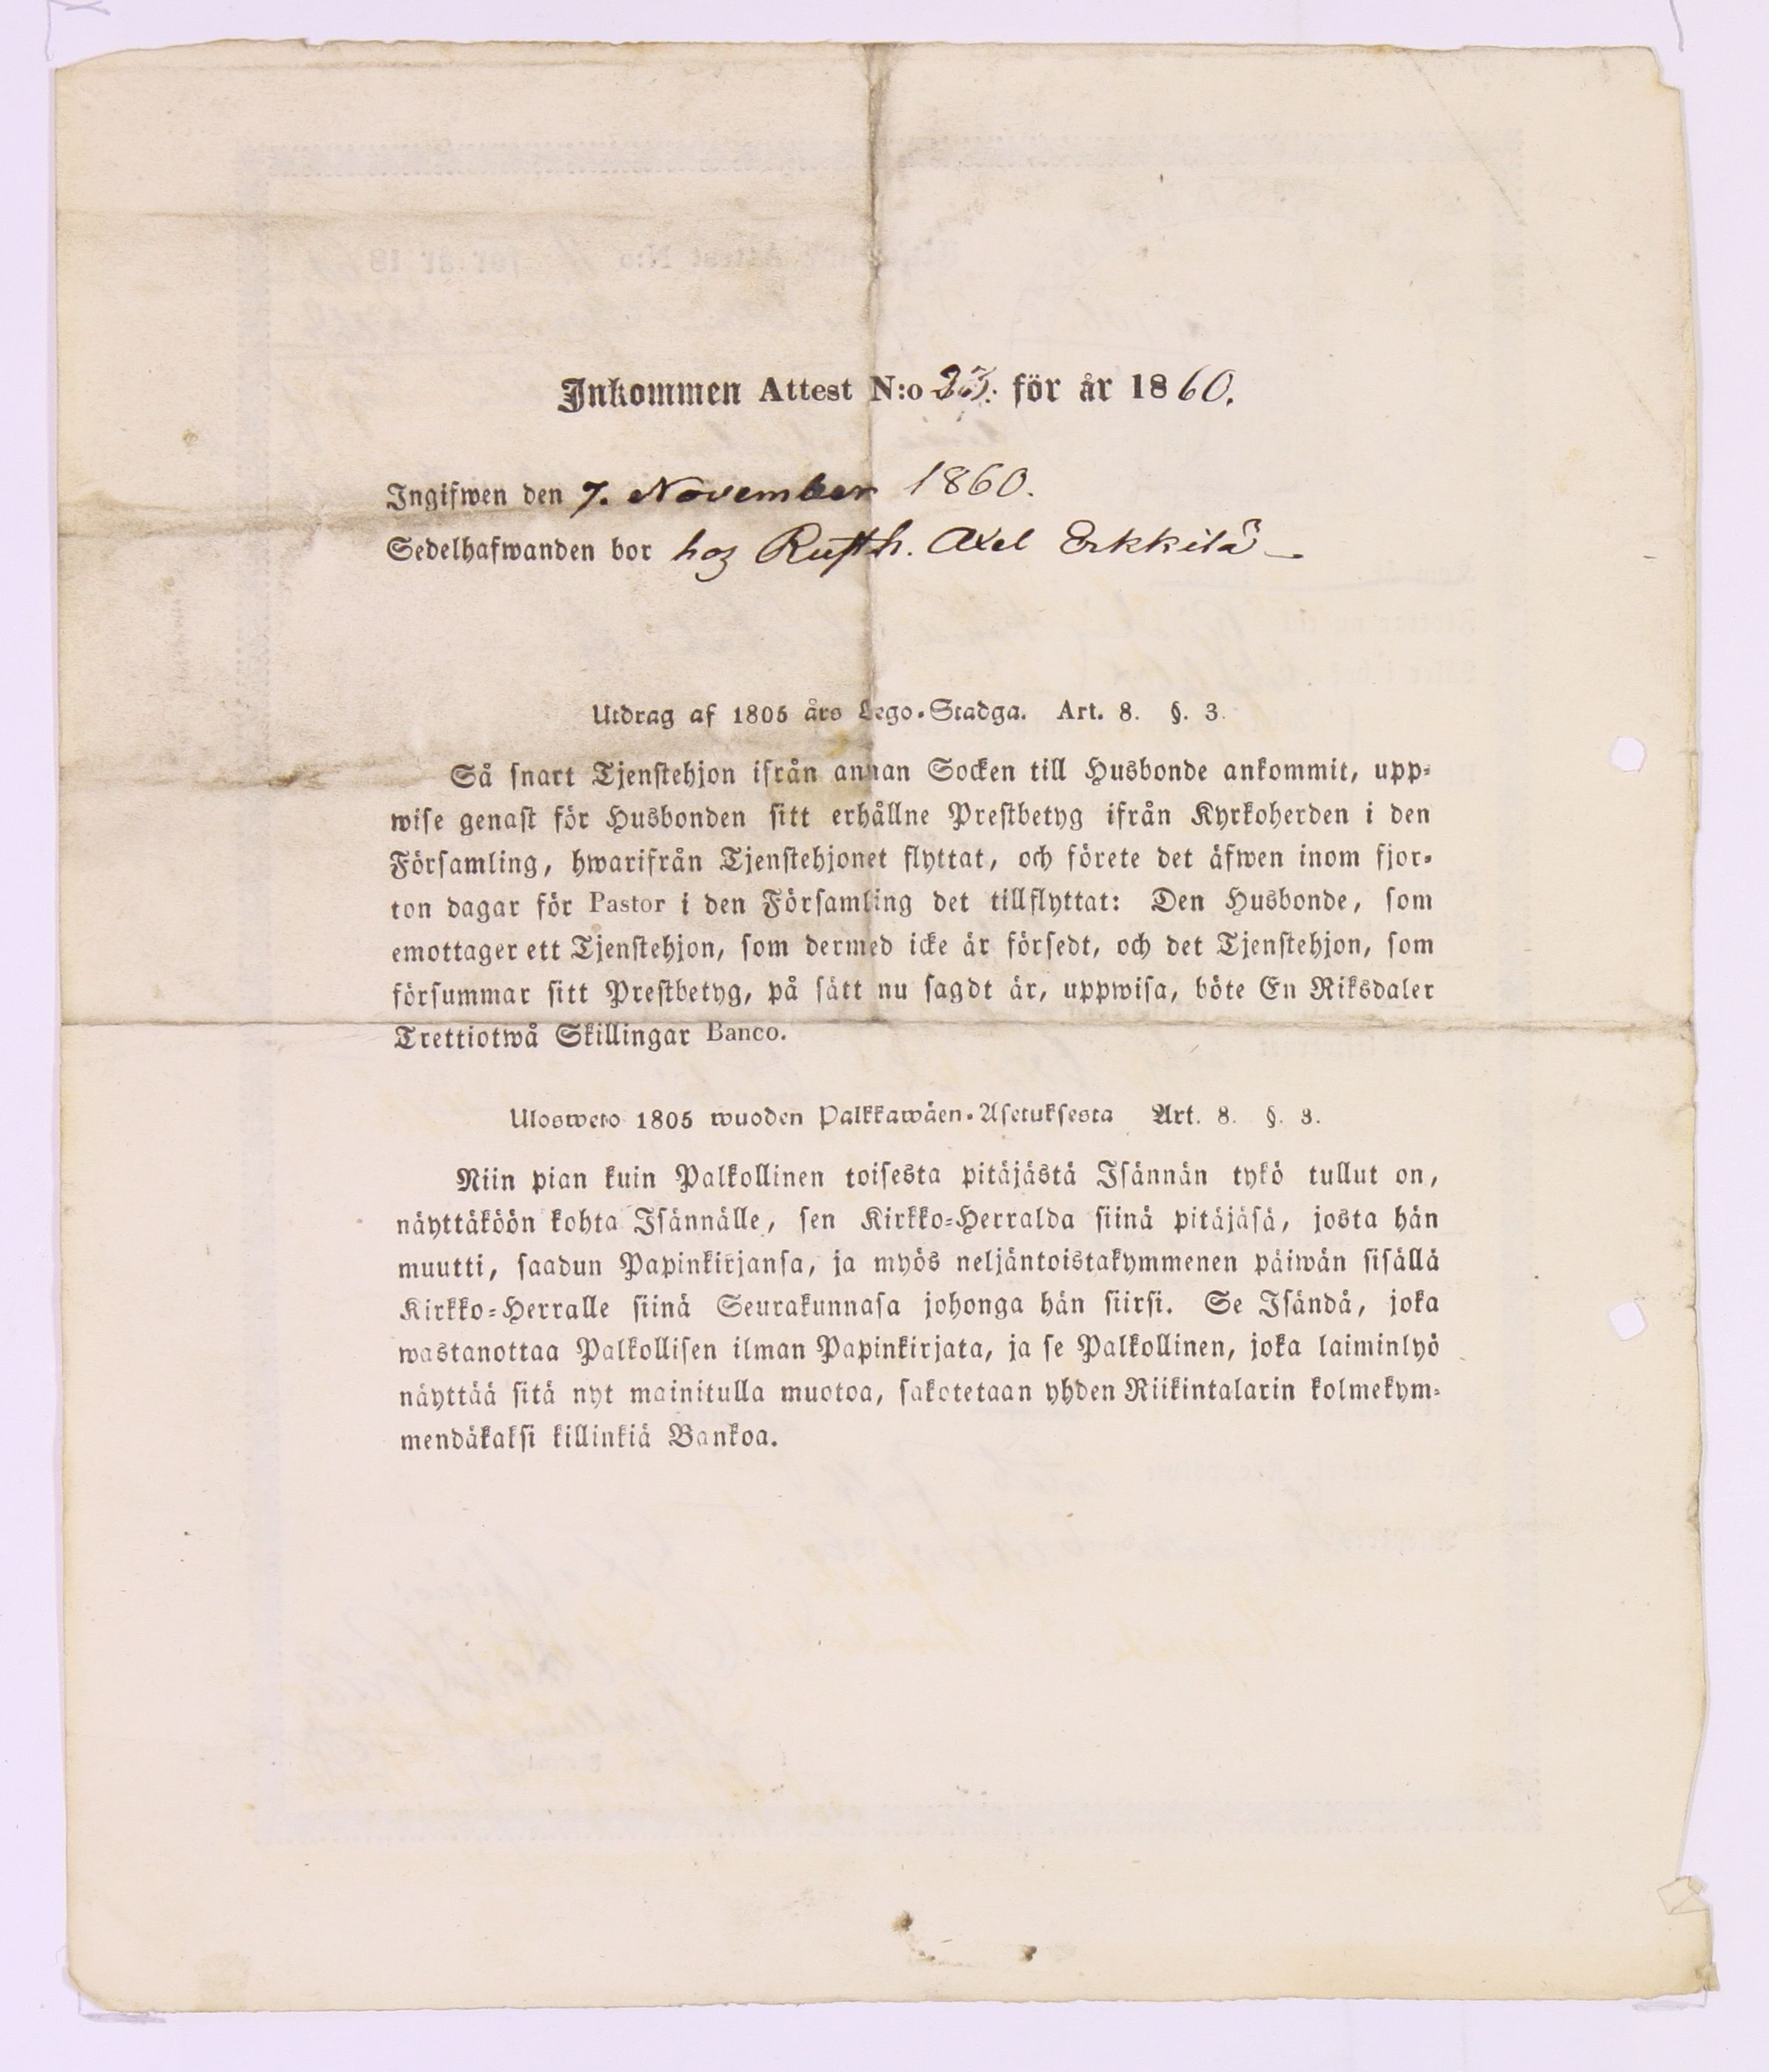 Inkommen Attest N:o 23. för år 1860.
Ingifwen den 7. November 1860.
Sedelhafwanden bor hos Rusth. Axel Erkkilä
Utdrag af 1805 års Lego-Stadga. Art. 8. §. 3.
Så snart Tjenstehjon ifrån annan Socken till Husbonde ankommit, upp-
wise genast för Husbonden sitt erhållne Prestbetyg ifrån Kyrkoherden i den
Församling, hwarifrån Tjenstehjonet flyttat, och förete det äfwen inom fjor-
ton dagar för Pastor i den Församling det tillflyttat: Den Husbonde, som
emottager ett Tjenstehjon, som dermed icke är försedt, och det Tjenstehjon, som
försummar sitt Prestbetyg, på sätt nu sagdt är, uppwisa, böte En Riksdaler
Trettiotwå Skillingar Banco.
Uloswero 1805 wuoden Palkkawäen-Asetuksesta Art. 8. §. 3.
Niin pian kuin Palkollinen toisesta pitäjästä Isännän tykö tullut on,
näyttäköön kohta Isännälle, sen Kirkko-Herralda siinä pitäjäsä, josta hän
muutti, saadun Papinkirjansa, ja myös neljäntoistakymmenen päiwän sisällä
Kirkko-Herralle siinä Seurakunnasa johonga hän siirsi. Se Isändä, joka
wastanottaa Palkollisen ilman Papinkirjata, ja se Palkollinen, joka laiminlyö
näyttää sitä nyt mainitulla muotoa, sakotetaan yhden Riikintalarin kolmekym-
mendäkaksi killinkiä Bankoa.